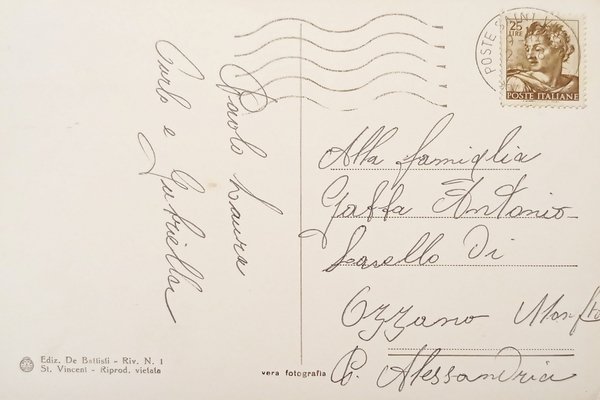 Paolo Laura
Carlo e Gabriella
POSTE
25
LIRE
POSTE ITALIANE
Alla famiglia
Gaffa Antonio
Di
Ozzano Monf
Alessandria
Ediz. De Battisti - Riv. N. 1
St. Vincent - Riprod. vietata
vera fotografia